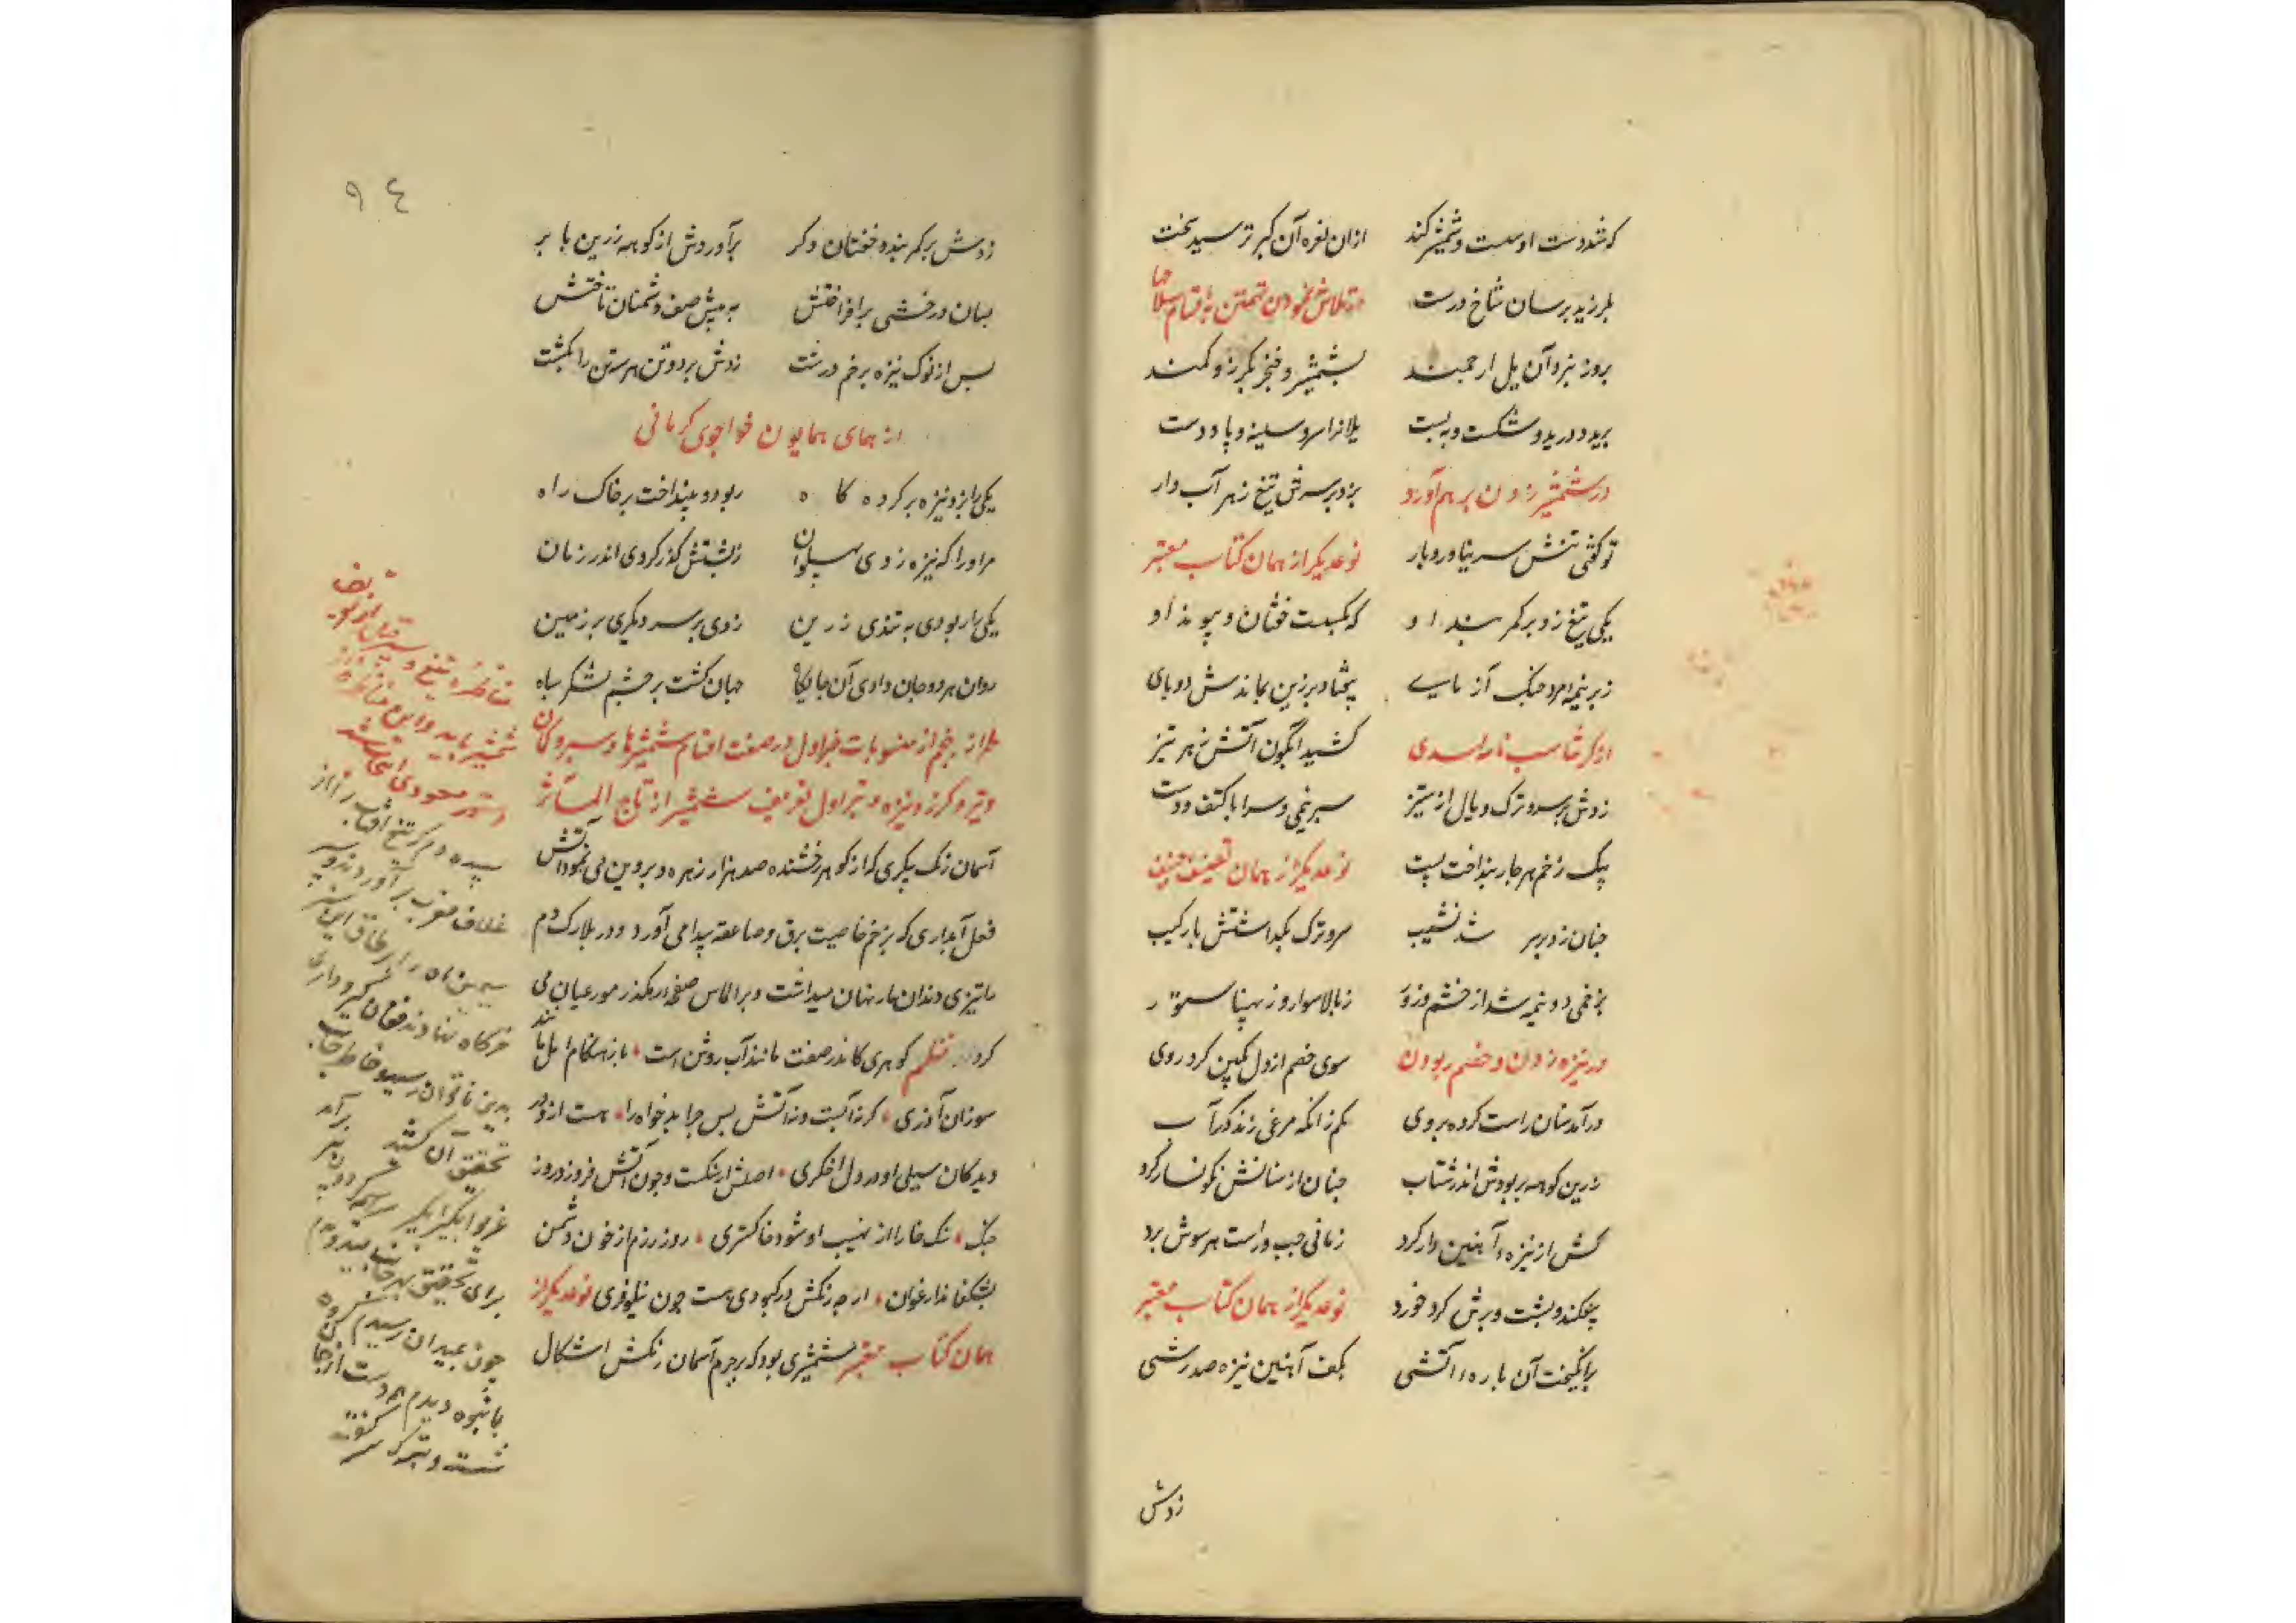 که شد دست اوست و شمشیر کند ازان نعره آن کبر ترسید سخت
بلرزید برسان شاخ درخت در تلاش نمودن تهمتن باقسام سلاحها
بروز نبرد آن یل ارجمند بشمشیر و خنجر بگرز و کمند
برید و درید و شکست و به بست یلانرا سر و سینه و پا و دست
در شمشیر زدن بر هم آورد بزد بر سرش تیغ زهر آب دار
تو گفتی تنش سر نیاورد بار نوعدیکر از همان کتاب معتبر
یکی تیغ زد بر کمر بند او که بکسست خفتان و پیوند او
زبر نیمه مرد جنک آزمای بیفتاد بر زین بماندش دو پای
از کرشاسب نامه اسدی کشید آبگون آتش زهر تیز
زدش بر سر و ترک و یال از ستیز سر نیمی و سر با کتف و دست
بیک زخم هر چار بنداخت پست نوعدیکر از همان تصنیف حنیف
چنان زد بر سر شد نشیب سر و ترک بکداشتش با رکیب
بزخمی دو نیمه شد از خشم و زور ز بالا سوار و ز پهنا ستور
در نیزه زدن و خصم ربودن سوی خصم از دل بکین کرد روی
درآمد سنان راست کرده بروی بکم زانکه مرغی زند کرد آب
ز زین کوهه بربودش اندر شتاب چنان از سنانش نکونسار کرد
کش از نیزه آهنین دار کرد زمانی چپ و راست هر سوش برد
بیفکند و پشت و برش کرد خورد نوعدیکر از همان کتاب معتبر
برانکیخت آن باره آتشی بکف آهنین نیزه صد رشی
زدش
۹٤
زدش بر کمر بند و خفتان و کر برآوردش از کوهه زرین با بر
بسان درخشی برافراختش به پیش صف دشمنان تاختش
پس از نوک نیزه بزخم درشت زدش بر دو تن هر سه تن را بکشت
از همای همایون خواجوی کرمانی
یکی را بزد نیزه بر کرده کاه ربود و بینداخت بر خاک راه
مر او را که نیزه زدی پهلوان ز پشتش کذر کردی اندر زمان
یکی را ربودی به تندی ز زین زدی بر سر دیکری بر زمین
روان هر دو جان دادی آن جایکاه جهان کشت بر چشم لشکر سیاه
طراز پنجم از منسوبات خبر اول در صفت اقسام شمشیرها و سپر و کمان
و تیر و کرز و نیزه و تبر اول تعریف شمشیر از تاج المآثر
آسمان رنک پیکری که از کوهر رخشنده صد هزار زهره و پروین می نمود آتش
فعل آبداری که بزخم خاصیت برق و صاعقه پیدا می آورد و در بلارک دم
با تیزی دندان مار نهان میداشت و بر الماس صفحه رهکذر مور عیان می
کرد نظم کوهری کاندر صفت مانند آب روشن است باز هنکام عمل مانند
سوزان آذری کر نه آبست و نه آتش بس چرا بدخواه را هست از او در
دیدکان سیلی و در دل اخکری اصلش از سنکست و چون آتش فروزد روز
جنک سنک خارا از نهیب او شود خاکستری روز رزم از خون دشمن
بشکفاند ارغوان ارچه رنکش در کبودی هست چون نیلوفری نوعدیکر از
همان کتاب معتبر شمشیری بود که بر چرم آسمان رنکش اشکال
مناظره تیغ و
شمشیر باید و این مناظره از
سپیده دم که تیغ آفتاب را از
غلاف مغرب برآوردند و سپر
سیمین ماه را از طاق این
خرکاه بنهادند فغان کیر و داری
بدین ناتوان رسید خاطر جانب
تحقیق آن کشید برآمد
غریو ابکیرابکیر سراسیمه کردون
برای تحقیق بهر جانب میدویدم
چون بمیدان رسیدم کروه
با نبوه دیدم همه دست از جان
شسته و بترک سر کفته